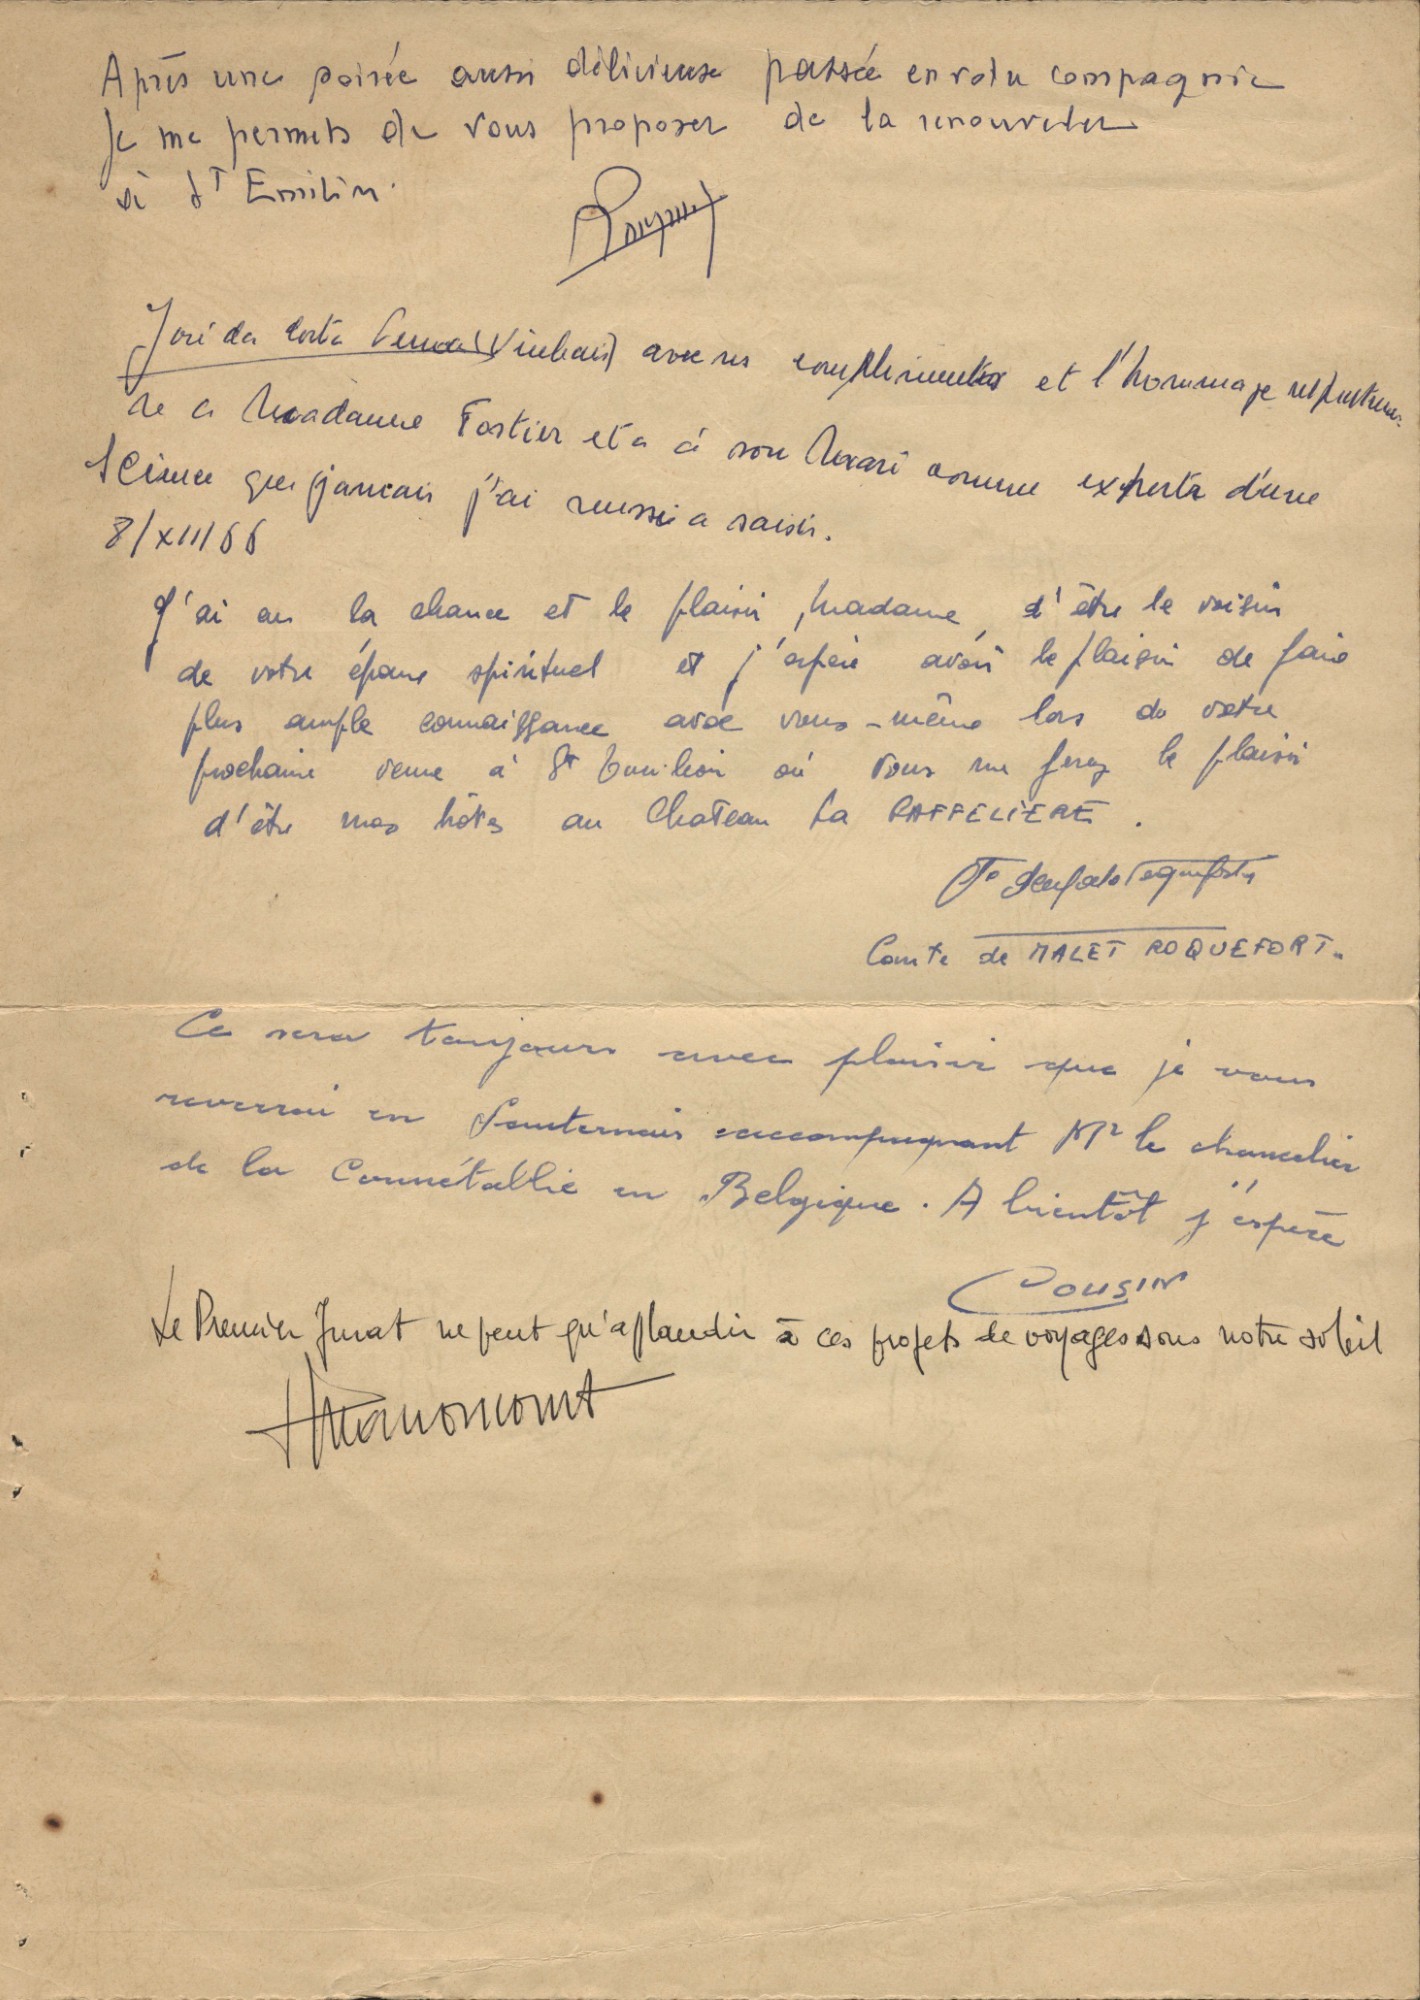 Après une soirée aussi délicieuse passée en votre compagnie
Je me permets de vous proposer de la renouveler
à St Emilion.
José da Costa (Vinhais) avec ses complimentes et l'hommage respectueux
de a Madame Fortier et a à son Mari comme experts d'une
science que jamais j'ai reussi a saisir.
8/XII/66
J'ai eu la chance et le plaisir, Madame, d'être le voisin
de votre époux spirituel et j'espère avoir le plaisir de faire
plus ample connaissance avec vous-même lors de votre
prochaine venue à St Emilion où vous me ferez le plaisir
d'être mes hôtes au Chateau La GAFFELIERE.
Comte de MALET ROQUEFORT.
Ce sera toujours avec plaisir que je vous
reverrai en Sauternais accompagnant Mr le chancelier
de la Connétablie en Belgique. A bientôt j'espère
COUSIN
Le Premier Jurat ne peut qu'applaudir à ces projets de voyages sous notre soleil